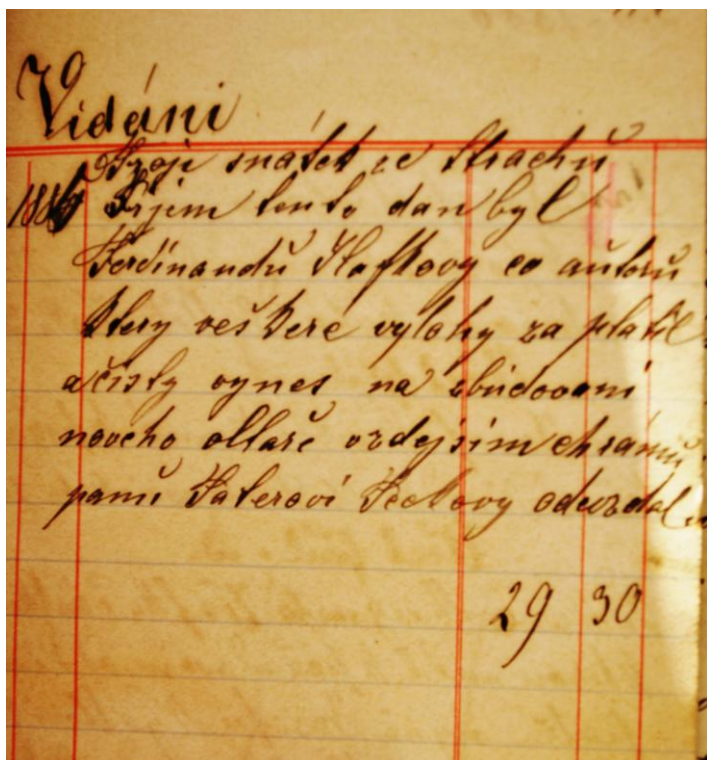 Vidáni
Spoji snátek ze strachů
1886 Prijem tento dan byl
Ferdinandů Haftovy co autorů
ktery veškere vylohy za platil
a čisty vynes na zbudovani
noveho oltaře vzdejsim chrámů
panů Paterovi odevzdal
29 30